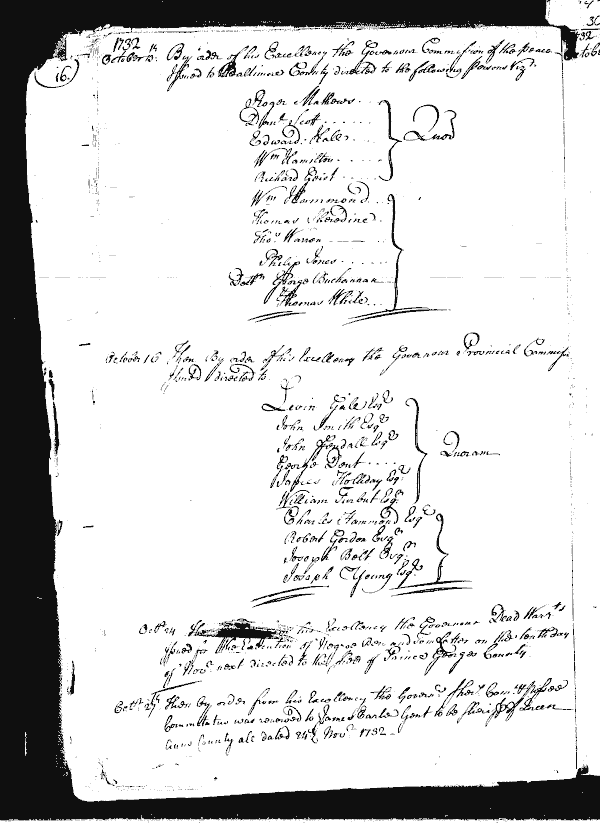 1732
16.
October 13th By order of his Excellency the Governour Commission of the peace
Issued to Baltimore County directed to the following persons Viz.
Roger Mathews...
Danl Scott......
Edward Hall...
Wm Hamilton.....
Richard Gist.....
Quor
Wm Hammond...
Thomas Sheredine.
Thos Warren
Philip Jones.....
Doctr George Buchannan
Thomas White...
October 16 Then By order of his Excellency the Governour Provincial Commissn
Issued directed to
Levin Gale Esqr
John Smith Esqr
John Fendall Esqr
George Dent....
James Holliday Esqr
William Turbut Esqr
Quoram
Charles Hammond Esqr
Robert Gordon Esqr
Joseph Belt Esqr
Joseph Young Esqr
Octr 24 his Excellency the Governour Dead Warrts
Issued for the Execution of Negroe Ben and on the tenth day
of Novr next directed to the Sher of Prince Georges County.
Octr 27 Then by order from his Excellency the Governr
Commitatus was renewed to James Earle Gent to be Sheriff of Queen
Anns County dated 24th Novr 1732